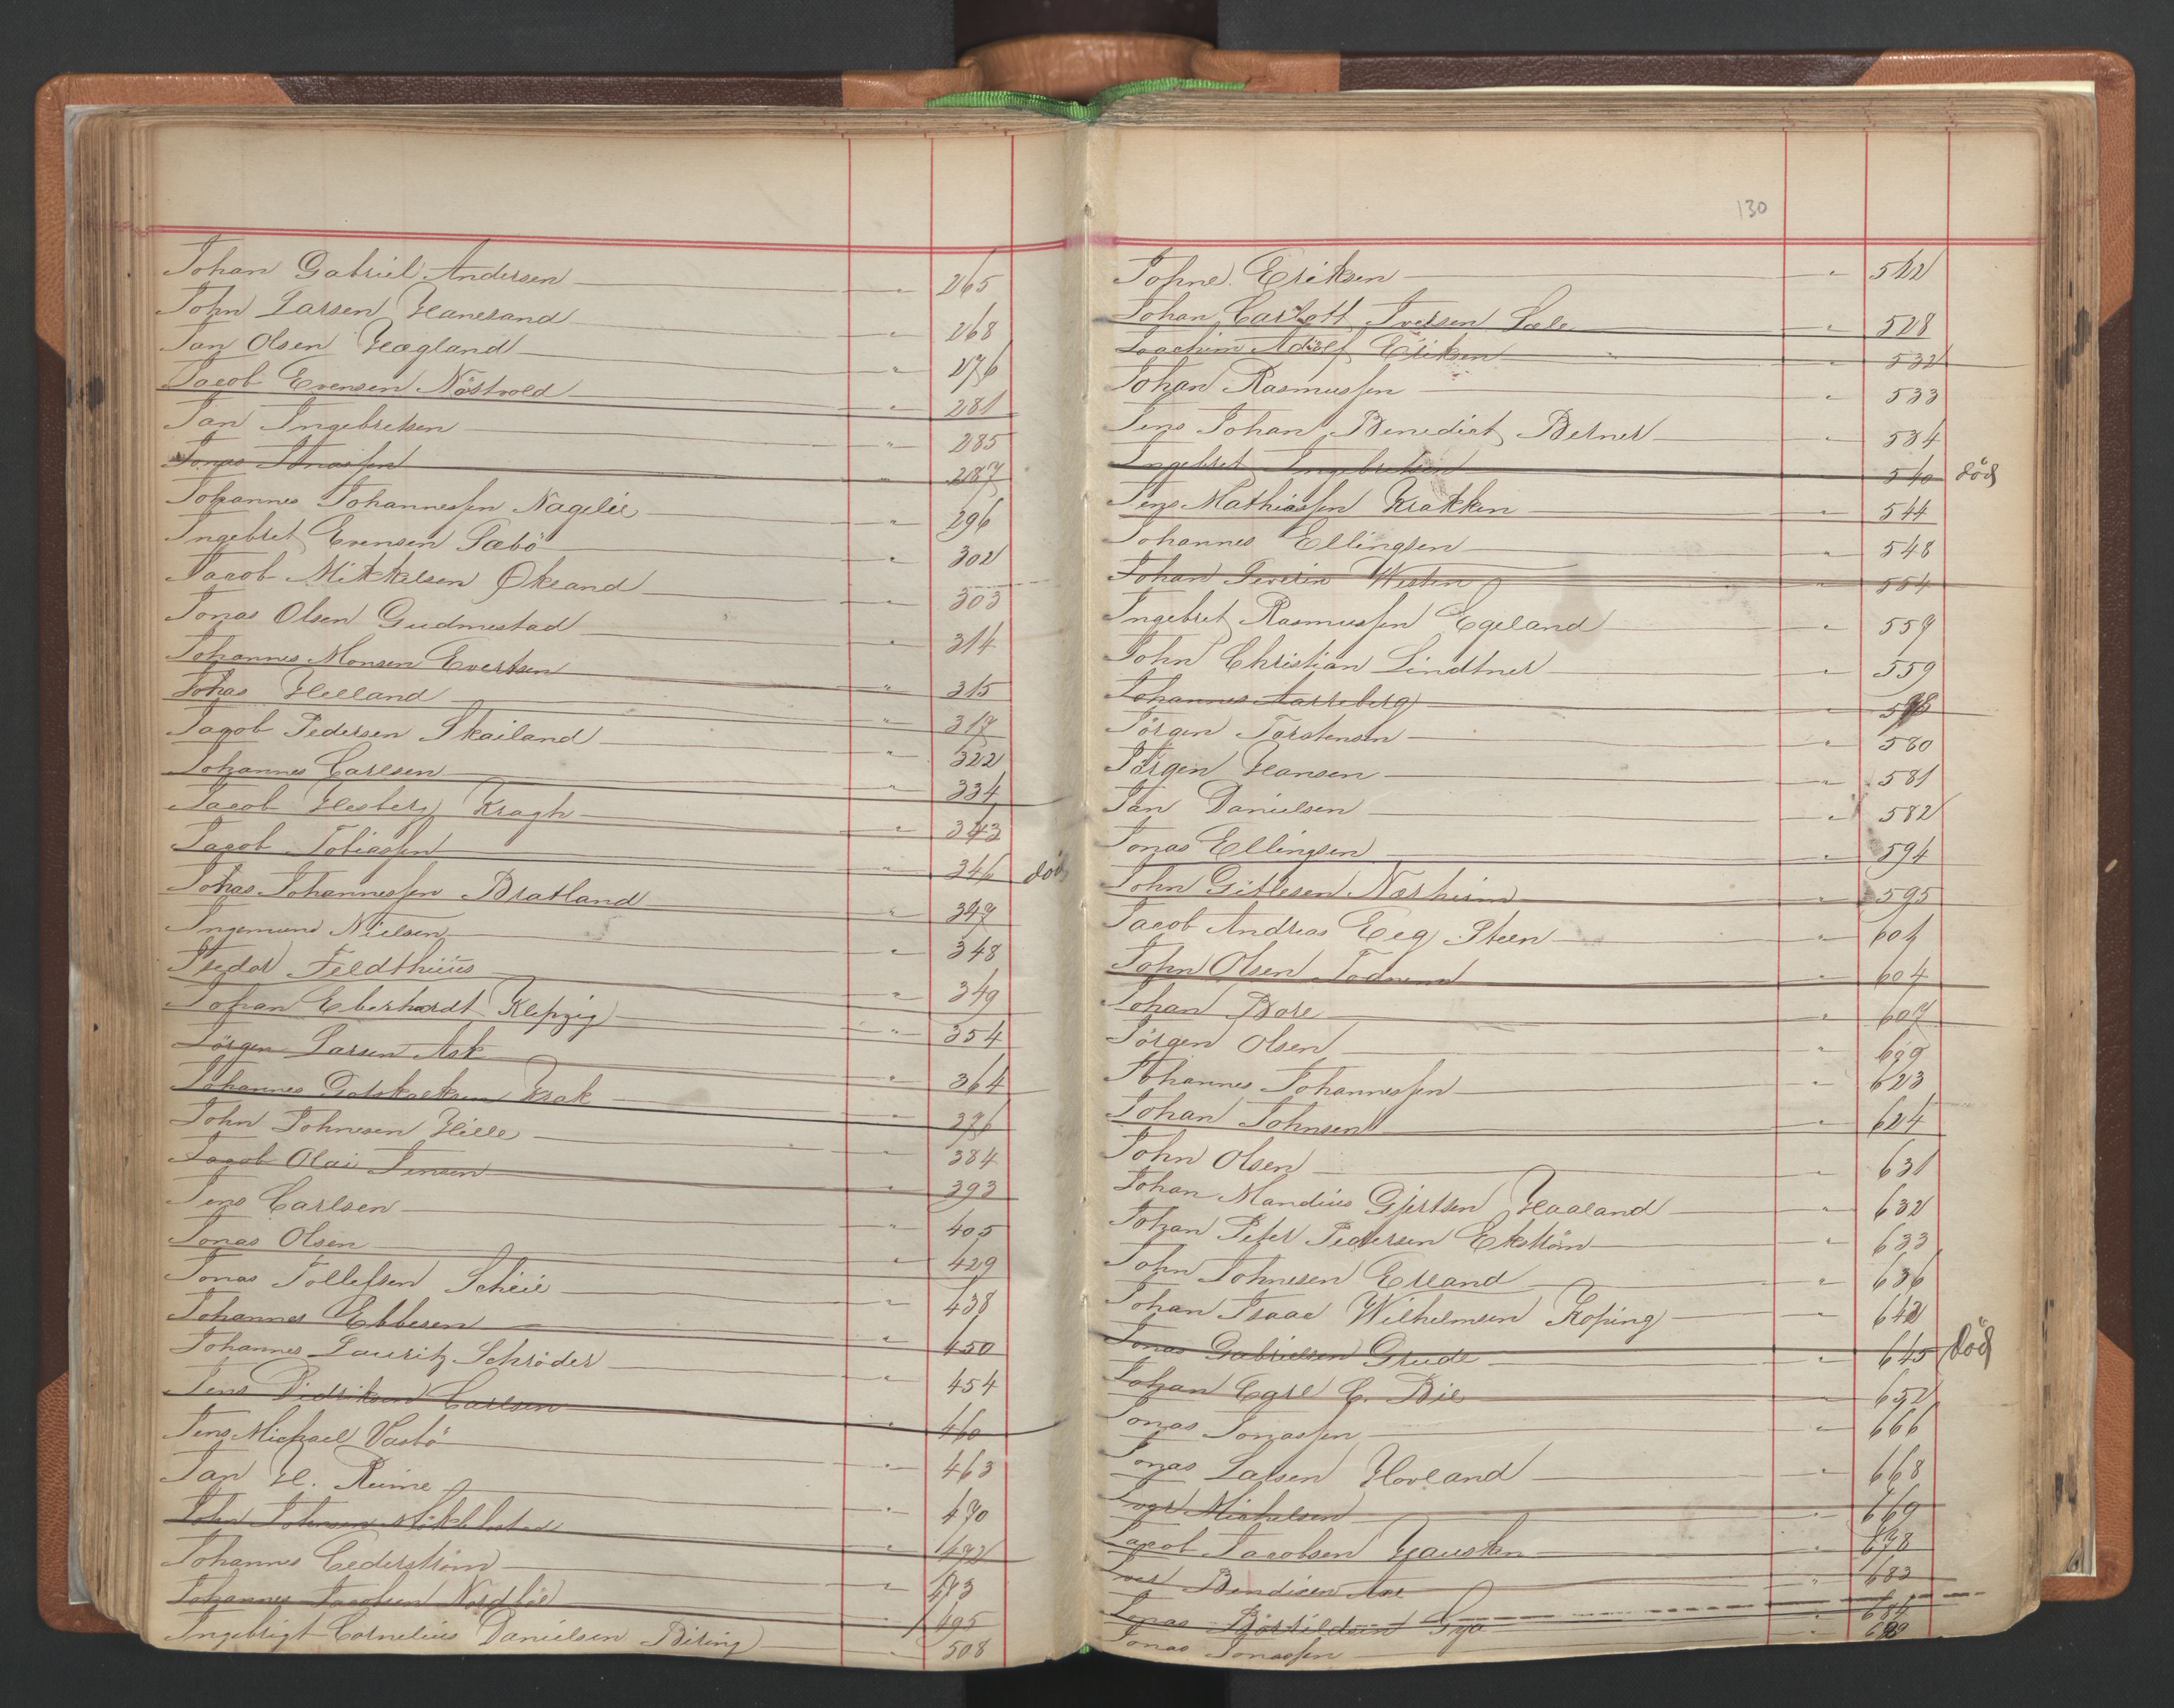 Johan Gabriel Andersen " 265
John Larsen Hanesand " 268
Jan Olsen Hægland " 276
Jacob Evensen Nöstvold " 281
Jan Ingebretsen " 285
Jonas Jonassen " 287
Johannes Johannessen Nagelie " 296
Ingebret Evensen Sæbö " 302
Jacob Mikkelsen Öksand " 303
Jonas Olsen Gudmestad " 314
Johannes Monsen Evertsen " 315
Johas Helland " 317
Jacob Pedersen Skailand " 322
Johannes Carlsen " 334
Jacob Hesberg Kragh " 343
Jacob Tobiassen " 346 död
Johas Johannessen Bratland " 347
Ingemund Nielsen " 348
Isedor Feldthuus " 349
Johan Eberhardt Klepzig " 354
Jörgen Larsen Ask " 364
Johannes Gotskalksen Krak " 376
John Johnesen Hille " 384
Jacob Olai Jensen " 393
Jens Carlsen " 405
Jonas Olsen " 429
Jonas Tollefsen Scheie " 438
Johannes Ebbesen " 450
Johannes Lauritz Schröder " 454
Jens Didriksen Carlsen " 460
Jens Michael Vasbö " 463
Jan H. Reime " 470
John Johnsen " 472
Johannes Cederström " 473
Johannes Jacobsen Nordböe " 495
Ingebrigt Cornelius Danielsen Biring " 508
130
Johne Eriksen " 522
Johan Carlott Iversen Sele " 528
Joachim Adolf Eriksen " 532
Johan Rasmussen " 533
Jens Johan Benedict Berner " 534
Ingebret Ingebretsen " 540 död
Jens Mathiassen Krakken " 544
Johannes Ellingsen " 548
Johan Severin Westen " 554
Ingebret Rasmussen Egeland " 559
John Christian Lindtner " 559
Johannes Aarreberg "
Jörgen Torstensen " 580
Jörgen Hansen " 581
Jan Danielsen " 582
Jonas Ellingsen " 594
John Gitlesen Nærheim " 595
Jacob Andreas Eeg Steen " 601
John Olsen Todnem " 604
Johan Bore " 607
Jörgen Olsen "
Johannes Johannessen " 623
Johan Johnsen " 624
John Olsen " 631
Johan Mandius Gjertsen Haaland " 632
Johan Peter Pedersen Ekström " 633
John Johnesen Erland " 636
Johan Isaac Wilhelmsen Koping " 642
Jonas Gabrielsen Grude " 645 död
Johan Carl C. Bie " 652
Jonas Jonassen " 666
Jonas Larsen Hovland " 668
Iver Michelsen " 669
Jacob Jacobsen Hausken " 678
Iver Bendixen Aae " 683
Jonas Gya " 684
Jonas Jonassen "